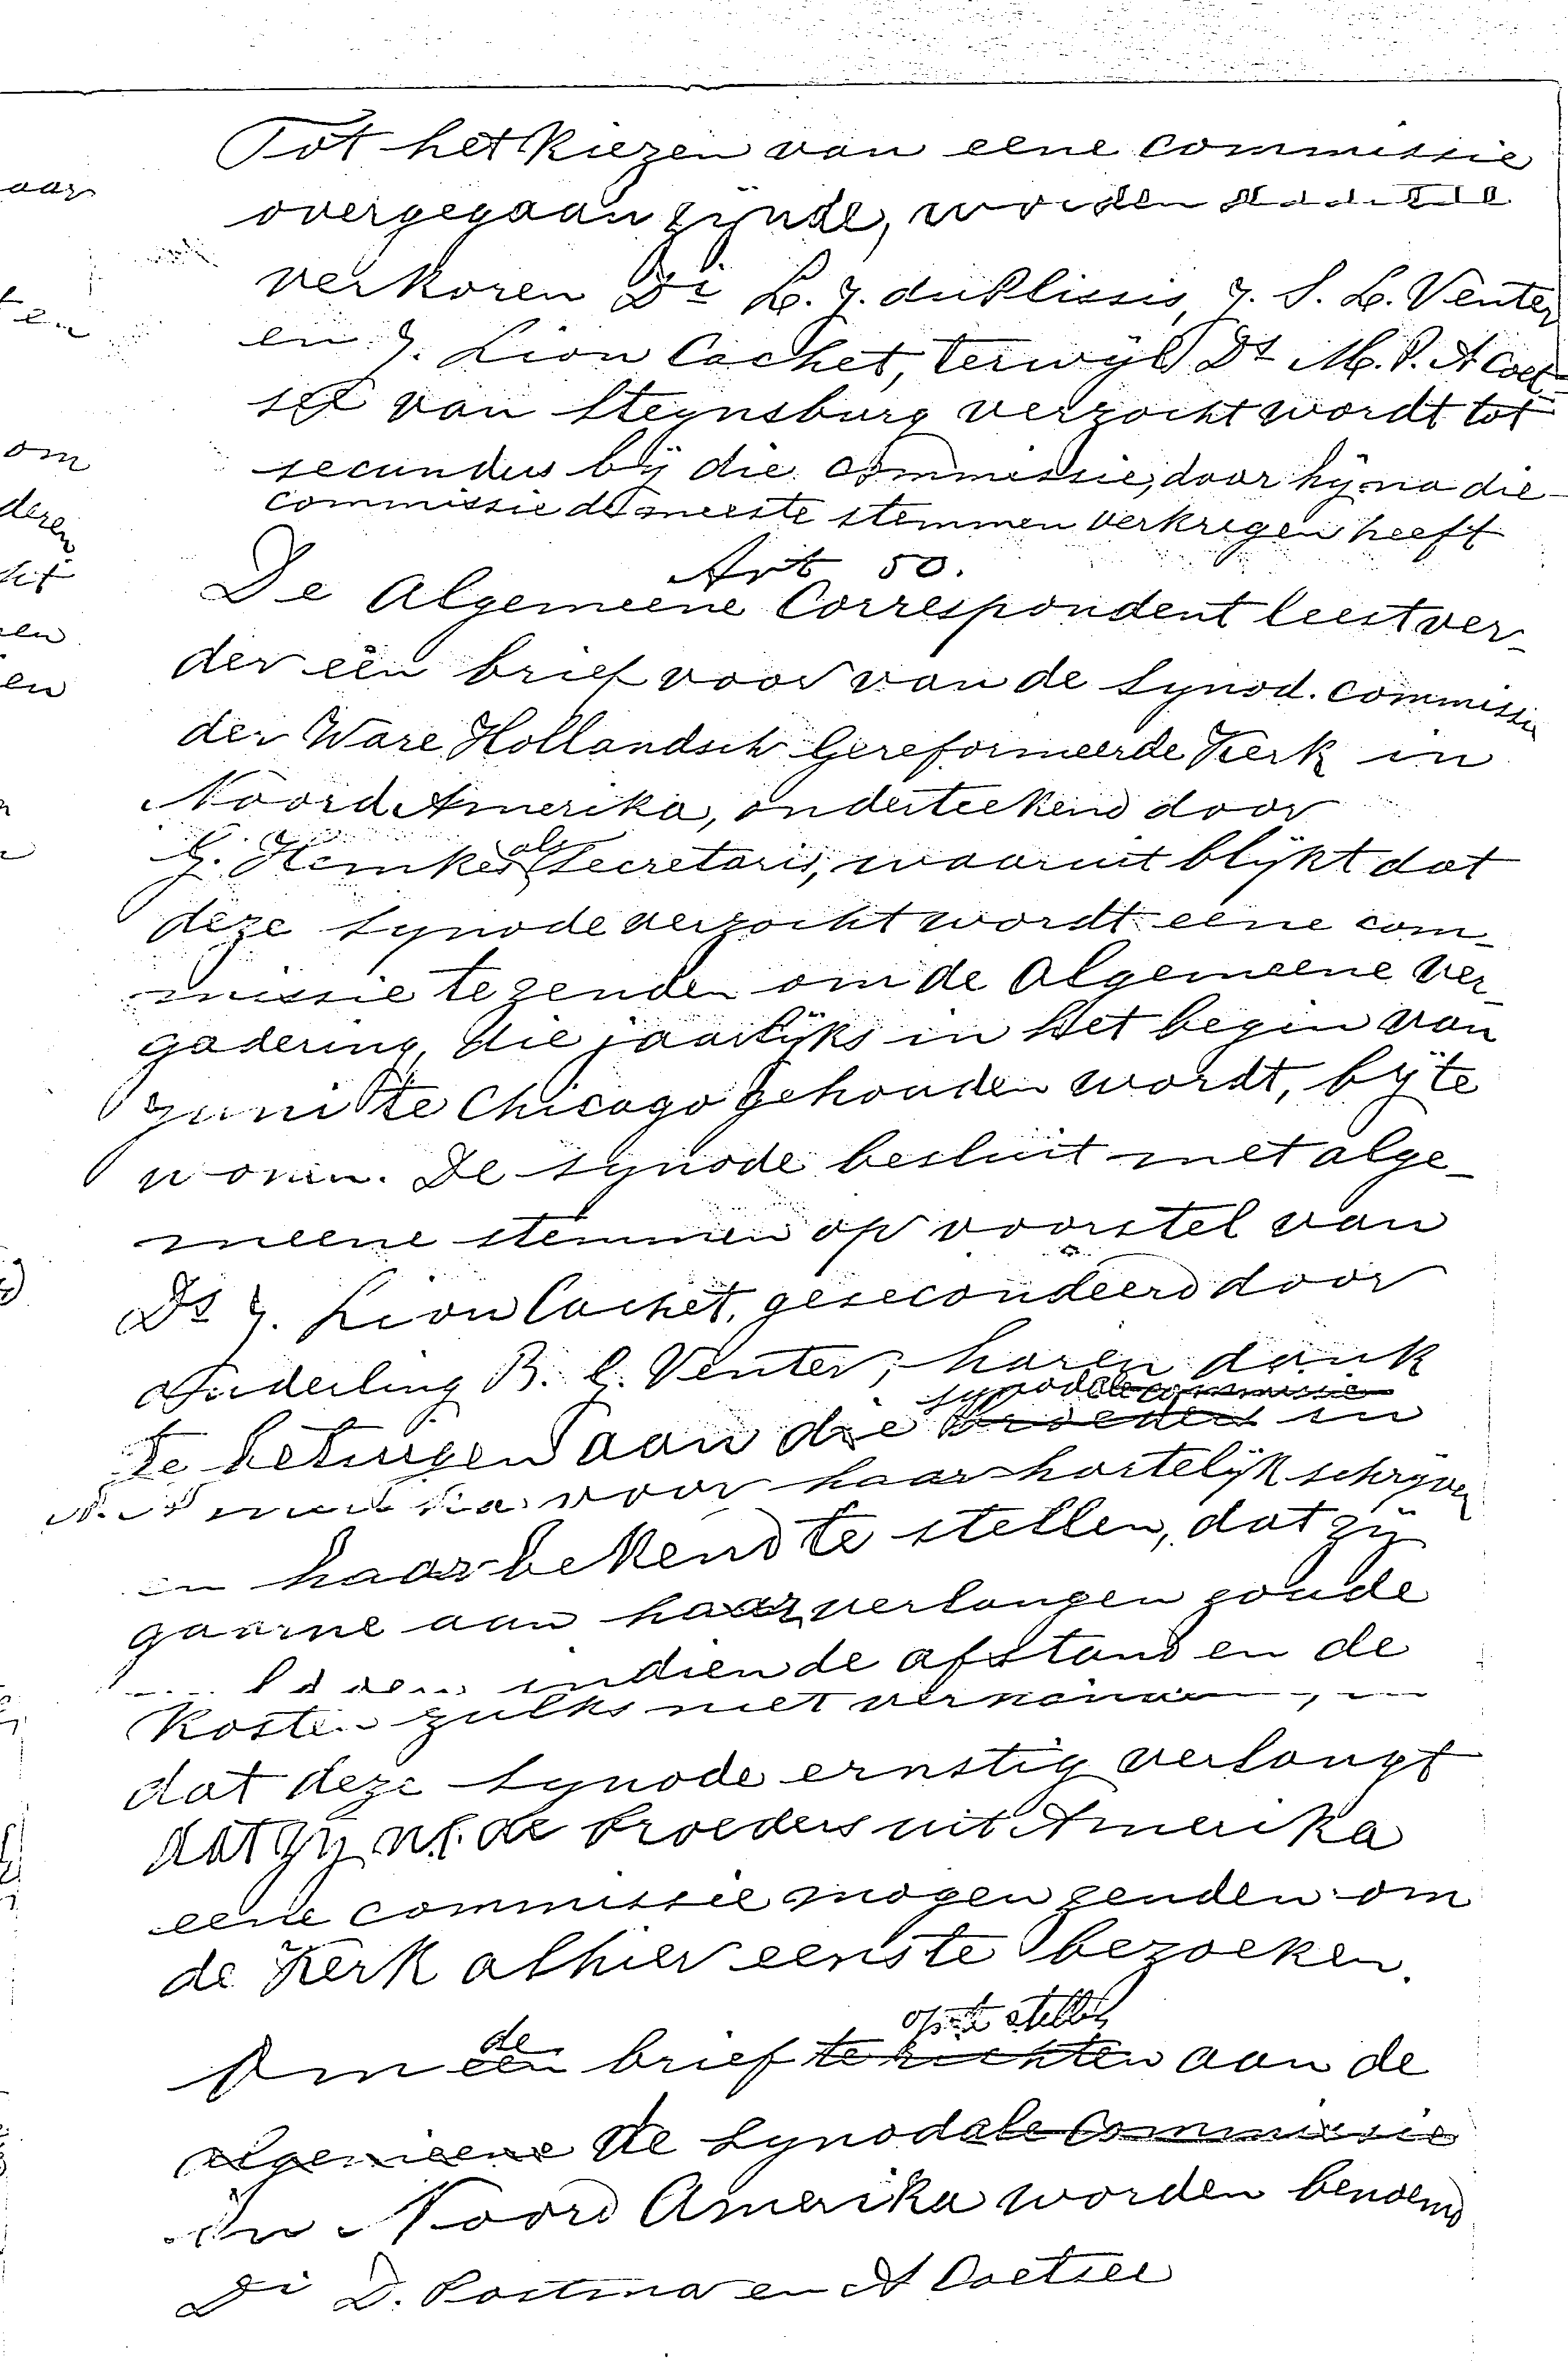 Tot het kiezen van eene commissie
overgegaan zijnde, worden
verkoren Di L. J. du Plissis, J. S. L. Venter
en J. Lion Cachet, terwijl Ds M. P. A Coet-
see van Steynsburg verzocht wordt tot
secundus bij die commissie, daar hij na die
commissie de meeste stemmen verkregen heeft
Art 50.
De Algemeene Correspondent leest ver-
der een brief voor van de Synod. commissie
der Ware Hollandsch Gereformeerde Kerk in
Noord Amerika, onderteekend door
G. Hemkes als Secretaris, waaruit blijkt dat
deze Synode verzocht wordt eene com-
missie te zenden om de Algemeene ver-
gadering, die jaarlijks in het begin van
Juni te Chicago gehouden wordt, bij te
wonen. De Synode besluit met alge-
meene stemmen op voorstel van
Ds J. Lion Cachet, gesecondeerd door
Ouderling B. G. Venter, haren dank
synodale commissie
te betuigen aan die broeders in
N. Amerika voor haar hartelijk schrijven
en haar bekend te stellen, dat zij
gaarne aan haar verlangen zoude
indien de afstand en de
Kosten zulks niet
dat deze Synode ernstig verlangt
dat zij nl. de broeders uit Amerika
eene commissie mogen zenden om
de Kerk alhier eens te bezoeken.
de op te stellen
Om een brief te richten aan de
algemeene de Synodale Commissie
in Noord Amerika worden benoemd
Di D. Postma en A Coetsee
aar
ten
om
deren
en
en